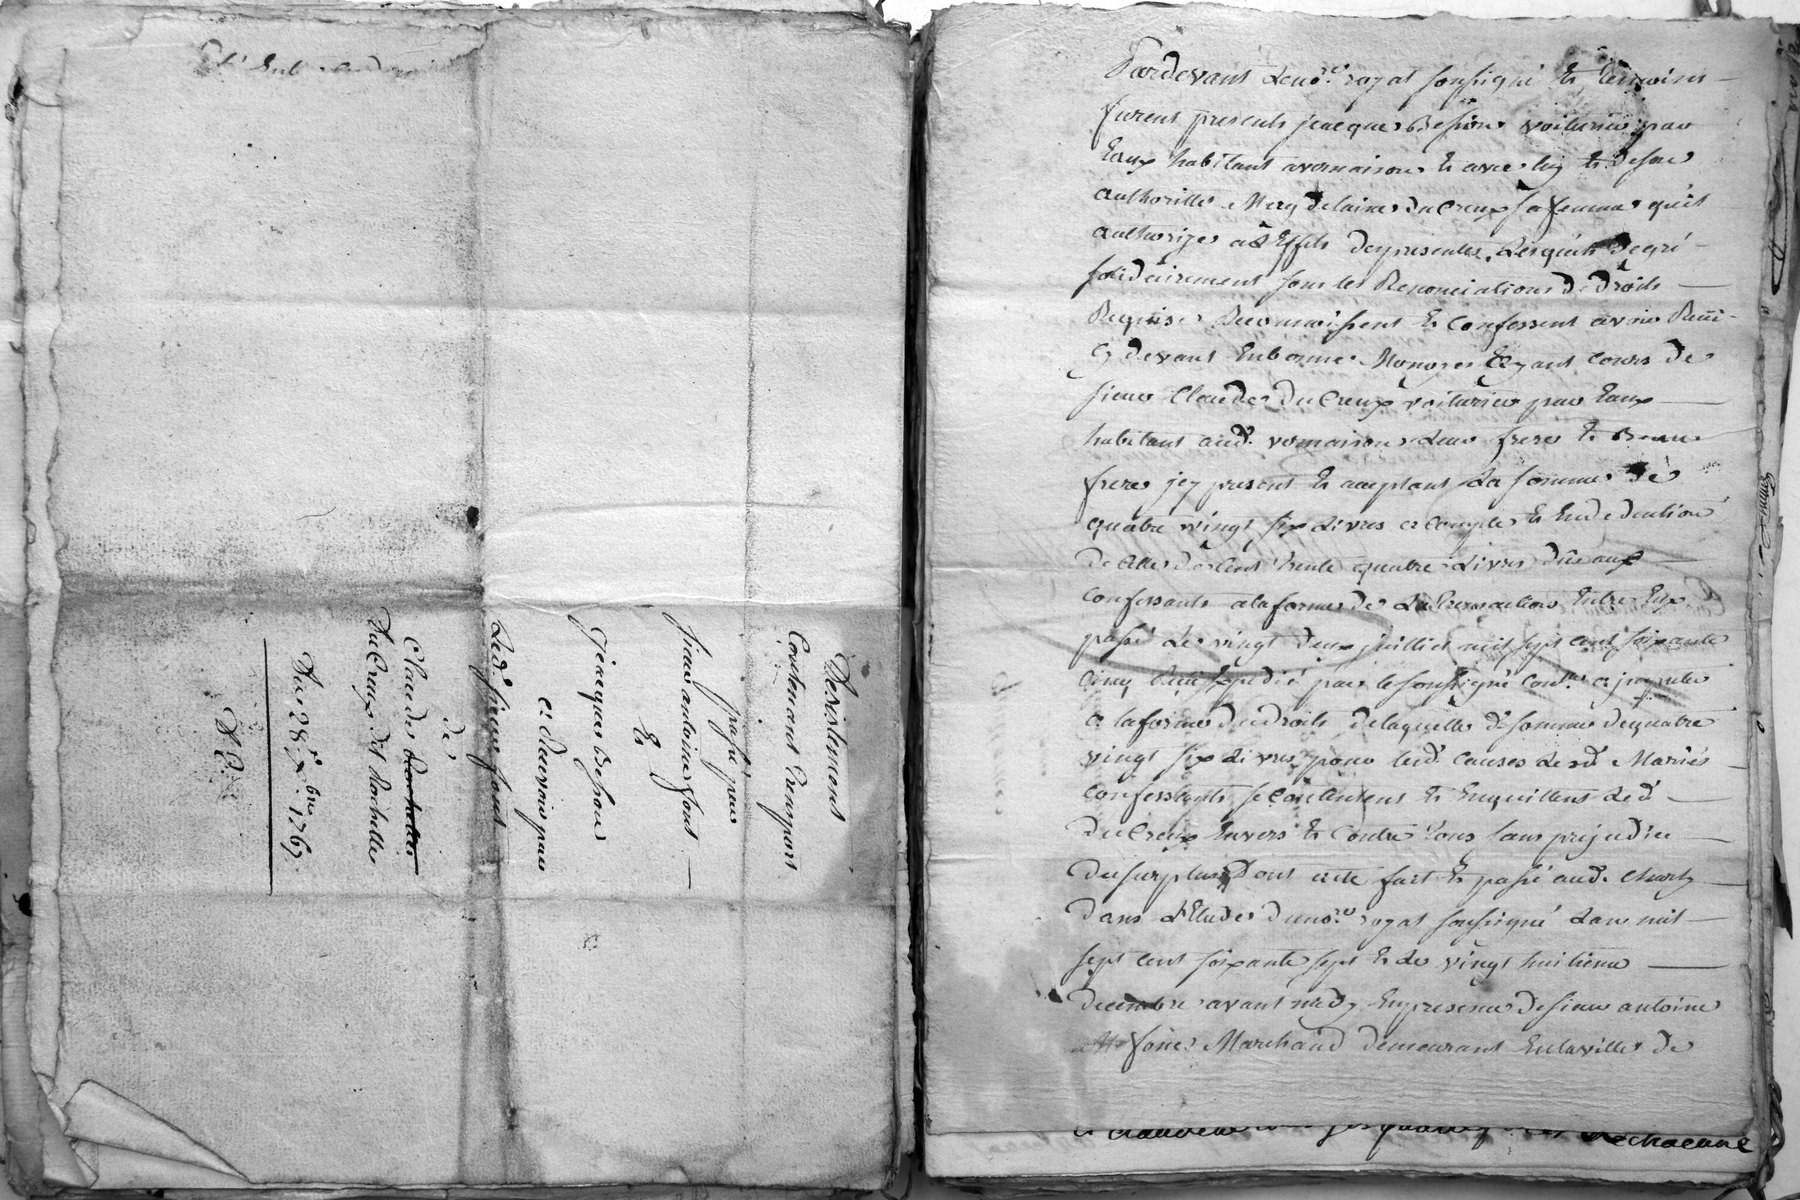 Desistement
Contenant Transport
passé par
jean antoine font
Et
jacques Besson
a Recevoir par
Led. sieur font
de
Claude
Du Creux dit Rochelle
Du 28e Xbre 1767
Pardevant Le no.re royal soussigné Et temoins
furent presents jacques Besson voiturier par
Eaux habitant a vernaison Et avec luy Et de son
authoritté Magdelaine Du Creux sa femme qu'il
authorize a l'Effet des presentes, Lesquels de gré
solidairement sous les Renonciations de droits
Requise Reconnoissent Et Confessent avoir
cy devant En bonne Monoye Ayant cours de
sieur Claude Du Creux voiturier par Eaux
habitant aud. vernaison Leur frere Et Beau
frere jcy present Et acceptant La somme de
quatre vingt six Livres a Compte Et En deduction
de Celle de Cent trente quatre Livres düe aux
Confessants a la forme de La transaction Entre Eux
passé Le vingt deux juillet mil sept cent soixante
Cinq par le soussigné
a la forme du droit de laquelle d. somme de quatre
vingt six Livres pour lesd. Causes Lesd. Mariés
Confessants se Contentent Et Enquittent Led.
Du Creux Envers Et Contre tous sans prejudice
du surplus Dont acte fait Et passé aud. Charly
dans L'Etude du no.re royal soussigné L'an mil
sept cent soixante sept Et Le vingt huitieme
decembre avant midy En presence de sieur antoine
Marchand demeurant En la ville de